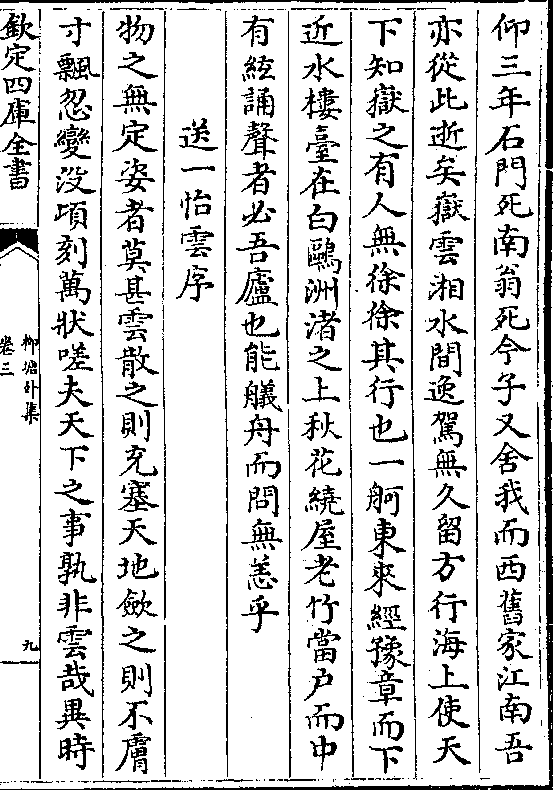 仰三年石門死南翁死今子又舍我而西舊家江南吾
亦從此逝矣嶽雲湘水間逸駕無久留方行海上使天
下知嶽之有人無徐徐其行也一舸東來經豫章而下
近水樓臺在白鷗洲渚之上秋花繞屋老竹當户而中
有絃誦聲者必吾廬也能艤舟而問無恙乎
送一怡雲序
物之無定姿者莫甚雲散之則充塞天地歛之則不膚
寸飄忽變没頃刻萬狀嗟夫天下之事孰非雲哉異時
欽定四庫全書
柳塘外集
卷三
九